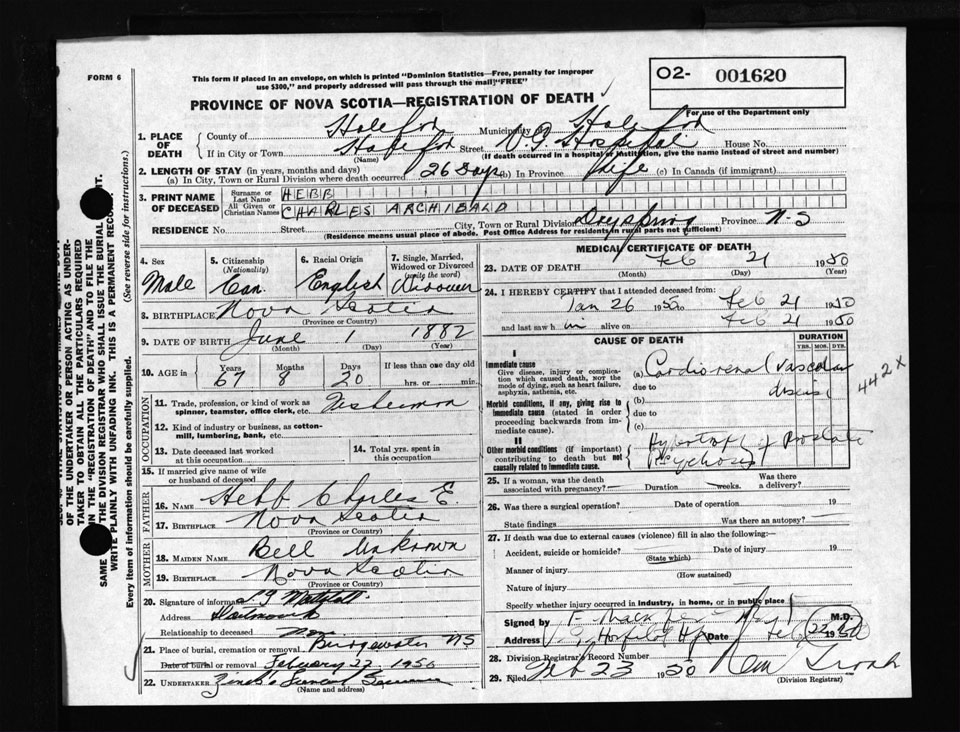 FORM 6
This form if placed in an envelope, on which is printed "Dominion Statistics—Free, penalty for improper
use $300," and properly addressed will pass through the mail "FREE"
O2- 001620
For use of the Department only
PROVINCE OF NOVA SCOTIA—REGISTRATION OF DEATH
1. PLACE OF DEATH
County of Halifax Municipality Halifax
If in City or Town Halifax Street V.G. Hospital House No.
(Name) (If death occurred in a hospital or institution, give the name instead of street and number)
2. LENGTH OF STAY (in years, months and days)
(a) In City, Town or Rural Division where death occurred 26 Days (b) In Province Life (c) In Canada (if immigrant)
3. PRINT NAME OF DECEASED
Surname or Last Name HEBB
All Given or Christian Names CHARLES ARCHIBALD
RESIDENCE No. Street City, Town or Rural Division Dayspring Province N-S
(Residence means usual place of abode. Post Office Address for residents in rural parts not sufficient)
4. Sex Male
5. Citizenship (Nationality) Can.
6. Racial Origin English
7. Single, Married, Widowed or Divorced (write the word) Widower
8. BIRTHPLACE Nova Scotia
(Province or Country)
9. DATE OF BIRTH June 1 1882
(Month) (Day) (Year)
10. AGE in Years 67 Months 8 Days 20 If less than one day old
hrs. or min.
OCCUPATION
11. Trade, profession, or kind of work as spinner, teamster, office clerk, etc. Fisherman
12. Kind of industry or business, as cotton-mill, lumbering, bank, etc.
13. Date deceased last worked at this occupation
14. Total yrs. spent in this occupation
15. If married give name of wife or husband of deceased
FATHER
16. NAME Hebb Charles E
17. BIRTHPLACE Nova Scotia
(Province or Country)
MOTHER
18. MAIDEN NAME Bell Unknown
19. BIRTHPLACE Nova Scotia
(Province or Country)
20. Signature of informant
Address
Relationship to deceased
21. Place of burial, cremation or removal Bridgewater NS
Date of burial or removal February 22 1950
22. UNDERTAKER Zinck's Funeral
(Name and address)
MEDICAL CERTIFICATE OF DEATH
23. DATE OF DEATH Feb 21 1950
(Month) (Day) (Year)
24. I HEREBY CERTIFY that I attended deceased from:
Jan 26 1950 to Feb 21 1950
and last saw h im alive on Feb 21 1950
CAUSE OF DEATH
DURATION
YRS. MOS. DYS.
I
Immediate cause
Give disease, injury or complication which caused death, not the mode of dying, such as heart failure, asphyxia, asthenia, etc.
(a) Cardiorenal vascular disease
442X
due to
Morbid conditions, if any, giving rise to immediate cause (stated in order proceeding backwards from immediate cause).
(b)
due to
(c)
II
Other morbid conditions (if important) contributing to death but not causally related to immediate cause.
Hypertrophy of prostate
Psychosis
25. If a woman, was the death associated with pregnancy? Duration weeks. Was there a delivery?
26. Was there a surgical operation? Date of operation 19
State findings Was there an autopsy?
27. If death was due to external causes (violence) fill in also the following:—
Accident, suicide or homicide? Date of injury 19
(State which)
Manner of injury
(How sustained)
Nature of injury
Specify whether injury occurred in industry, in home, or in public place
Signed by M.D.
Address V.G. Hospital Hfx Date Feb 22 1950
28. Division Registrar's Record Number
29. Filed Feb 23 1950
(Division Registrar)
OF THE UNDERTAKER OR PERSON ACTING AS UNDERTAKER TO OBTAIN ALL THE PARTICULARS REQUIRED
IN THE "REGISTRATION OF DEATH" AND TO FILE THE
SAME THE DIVISION REGISTRAR WHO SHALL ISSUE THE BURIAL
WRITE PLAINLY WITH UNFADING INK. THIS IS A PERMANENT RECORD.
Every item of information should be carefully supplied. (See reverse side for instructions.)